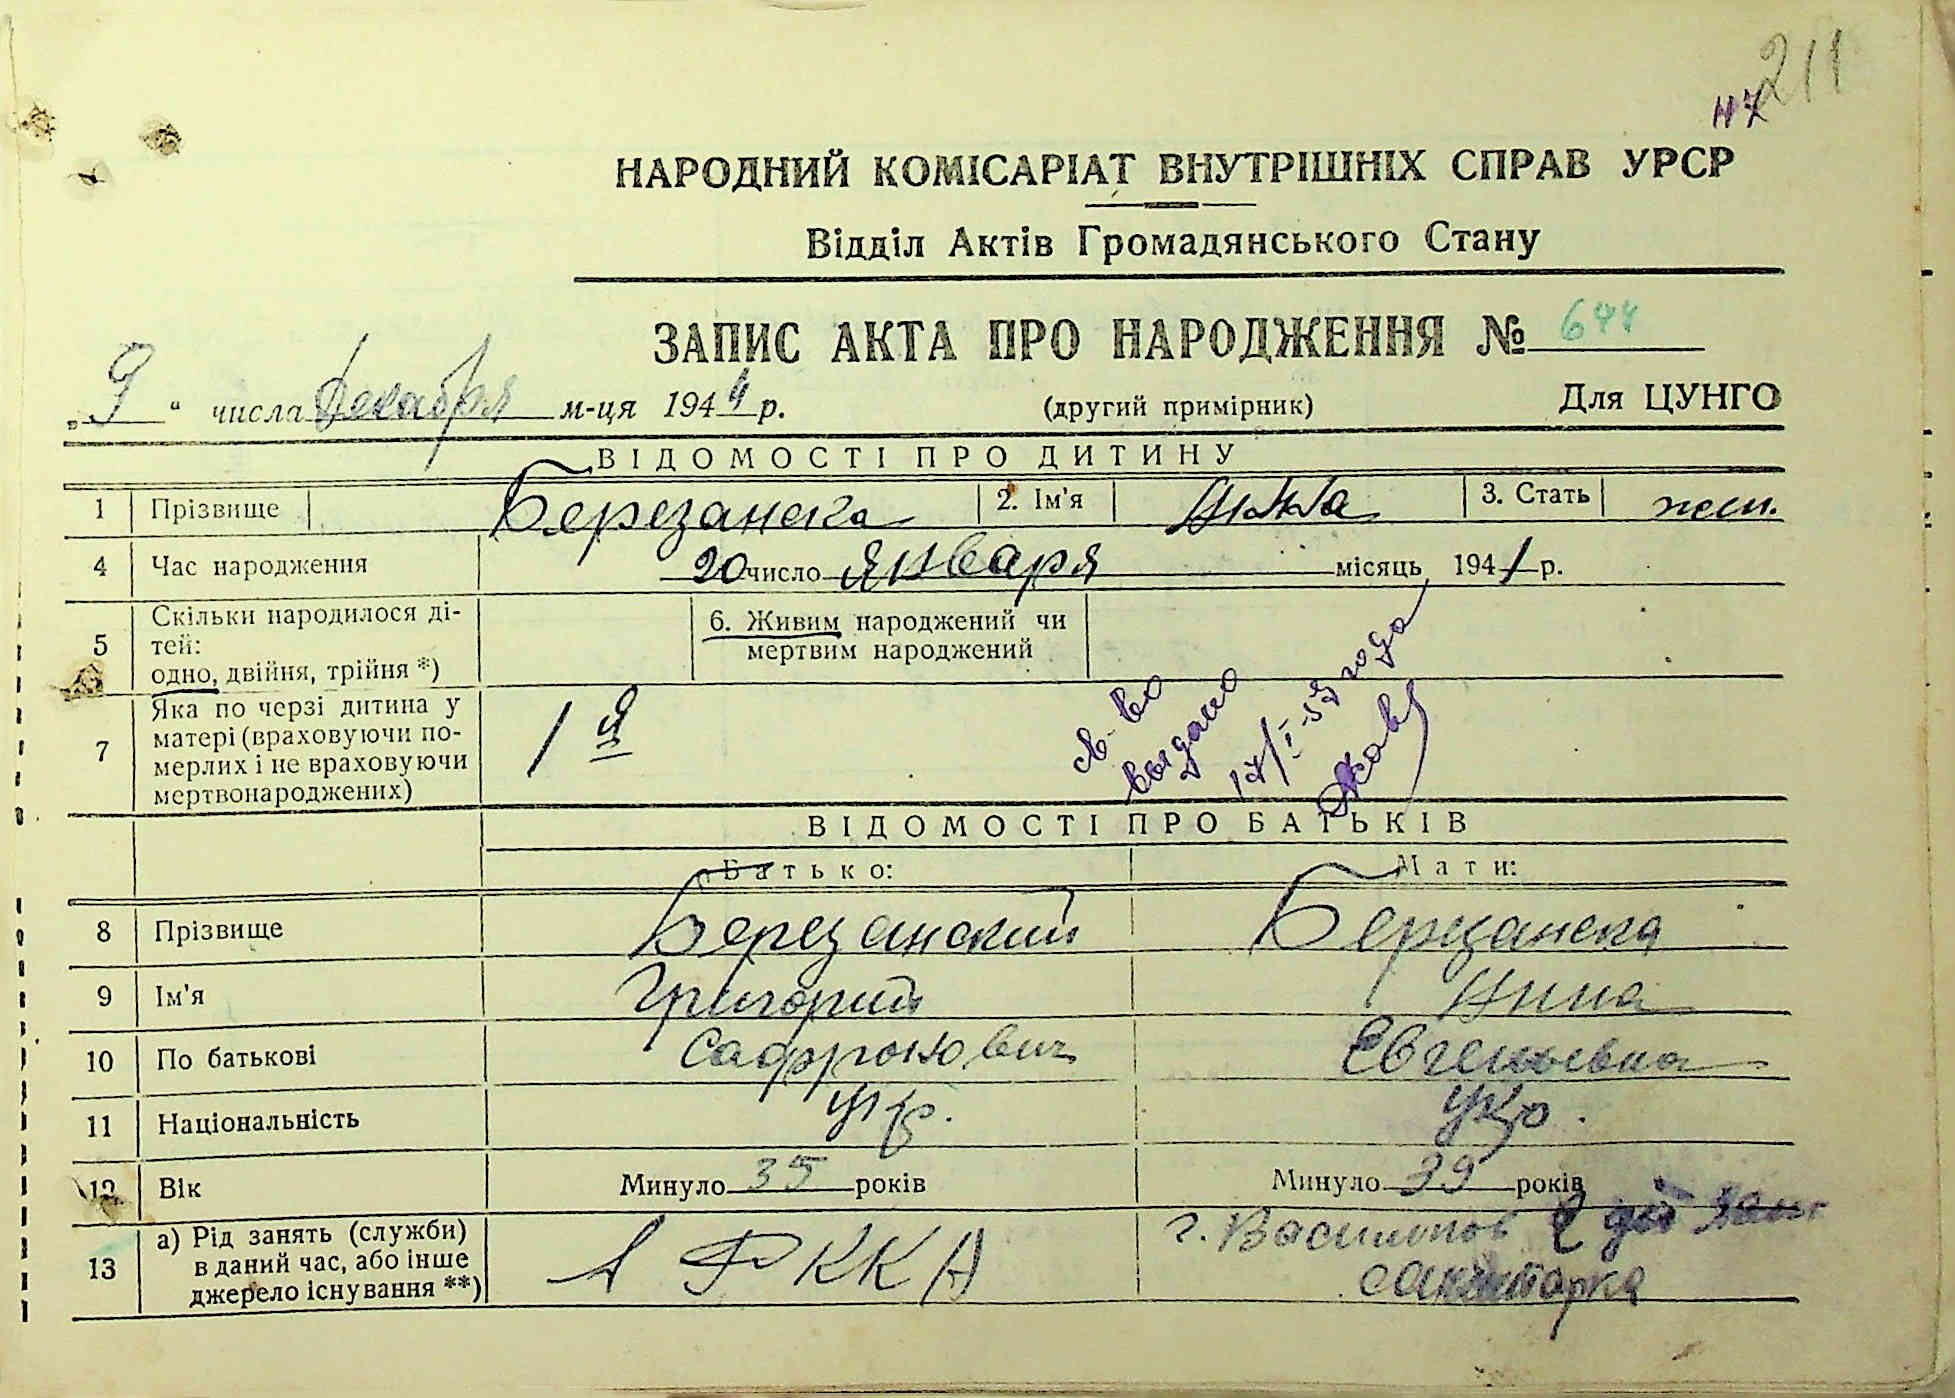 211
Н7
НАРОДНИЙ КОМІСАРІАТ ВНУТРІШНІХ СПРАВ УРСР
Відділ Актів Громадянського Стану
ЗАПИС АКТА ПРО НАРОДЖЕННЯ № 644
„ 9 “ числа Декабря м-ця 1944 р. (другий примірник) Для ЦУНГО
ВІДОМОСТІ ПРО ДИТИНУ
1 Прізвище Березанска 2. Ім'я Нина 3. Стать жен.
4 Час народження 20 число января місяць 1941 р.
5 Скільки народилося ді-
тей:
одно, двійня, трійня *)
6. Живим народжений чи
мертвим народжений
7 Яка по черзі дитина у
матері (враховуючи по-
мерлих і не враховуючи
мертвонароджених)
1 я
св-во
выдано
17/I-52 года
ВІДОМОСТІ ПРО БАТЬКІВ
Батько: Мати:
8 Прізвище Березанский Березанска
9 Ім'я Григорий Нина
10 По батькові Сафронович Евгеньевна
11 Національність укр. укр.
12 Вік Минуло 35 років Минуло 39 років
13 а) Рід занять (служби)
в даний час, або інше
джерело існування **)
РККА
г. Васильков
санитарка